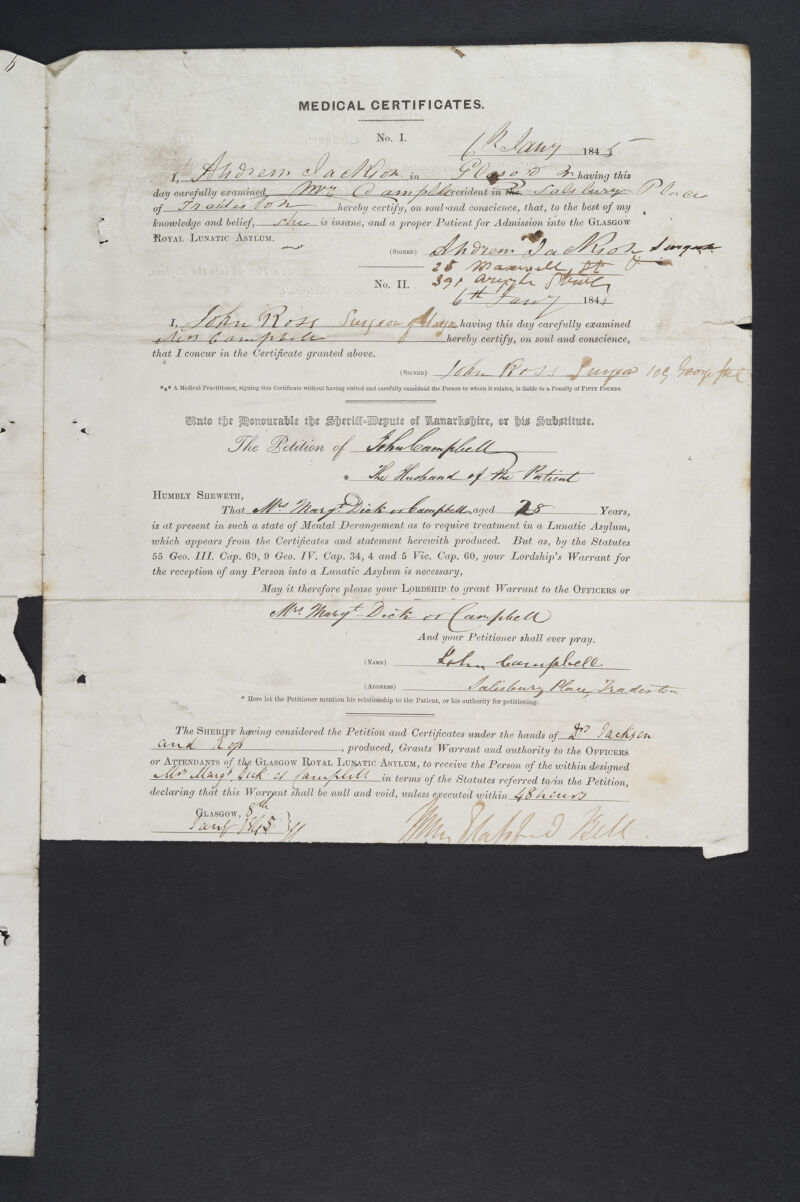 MEDICAL CERTIFICATES.
No. I.
6th Jany 1845
I, Andrew Jackson in Glasgow having this
day carefully examined Mrs Campbell resident in the Salsbury Place
of Tradeston hereby certify, on soul and conscience, that, to the best of my
knowledge and belief, she is insane, and a proper Patient for Admission into the GLASGOW
ROYAL LUNATIC ASYLUM.
(SIGNED) Andrew Jackson Surgeon
25 Maxwell St
391 Argyle Street
No. II.
6th Jany 1845
I, John Ross Surgeon Glasgow having this day carefully examined
Mrs Campbell hereby certify, on soul and conscience,
that I concur in the Certificate granted above.
(SIGNED) John Ross Surgeon 109 George St
*** A Medical Practitioner, signing this Certificate without having visited and carefully examined the Person to whom it relates, is liable to a Penalty of FIFTY POUNDS.
Unto the Honourable the Sheriff-Depute of Lanarkshire, or his Substitute.
The Petition of John Campbell
* The Husband of the Patient
HUMBLY SHEWETH,
That Mrs Margt Dick or Campbell aged 28 Years,
is at present in such a state of Mental Derangement as to require treatment in a Lunatic Asylum,
which appears from the Certificates and statement herewith produced. But as, by the Statutes
55 Geo. III. Cap. 69, 9 Geo. IV. Cap. 34, 4 and 5 Vic. Cap. 60, your Lordship's Warrant for
the reception of any Person into a Lunatic Asylum is necessary,
May it therefore please your LORDSHIP to grant Warrant to the OFFICERS or
Mrs Margt Dick or Campbell
And your Petitioner shall ever pray.
(NAME) John Campbell
(ADDRESS) Salisbury Place, Tradeston
* Here let the Petitioner mention his relationship to the Patient, or his authority for petitioning.
The SHERIFF having considered the Petition and Certificates under the hands of Drs Jackson
and Ross, produced, Grants Warrant and authority to the OFFICERS
or ATTENDANTS of the GLASGOW ROYAL LUNATIC ASYLUM, to receive the Person of the within designed
Mrs Margt Dick or Campbell in terms of the Statutes referred to in the Petition,
declaring that this Warrant shall be null and void, unless executed within 48 hours
GLASGOW, 8th
Jany 1845
Bell